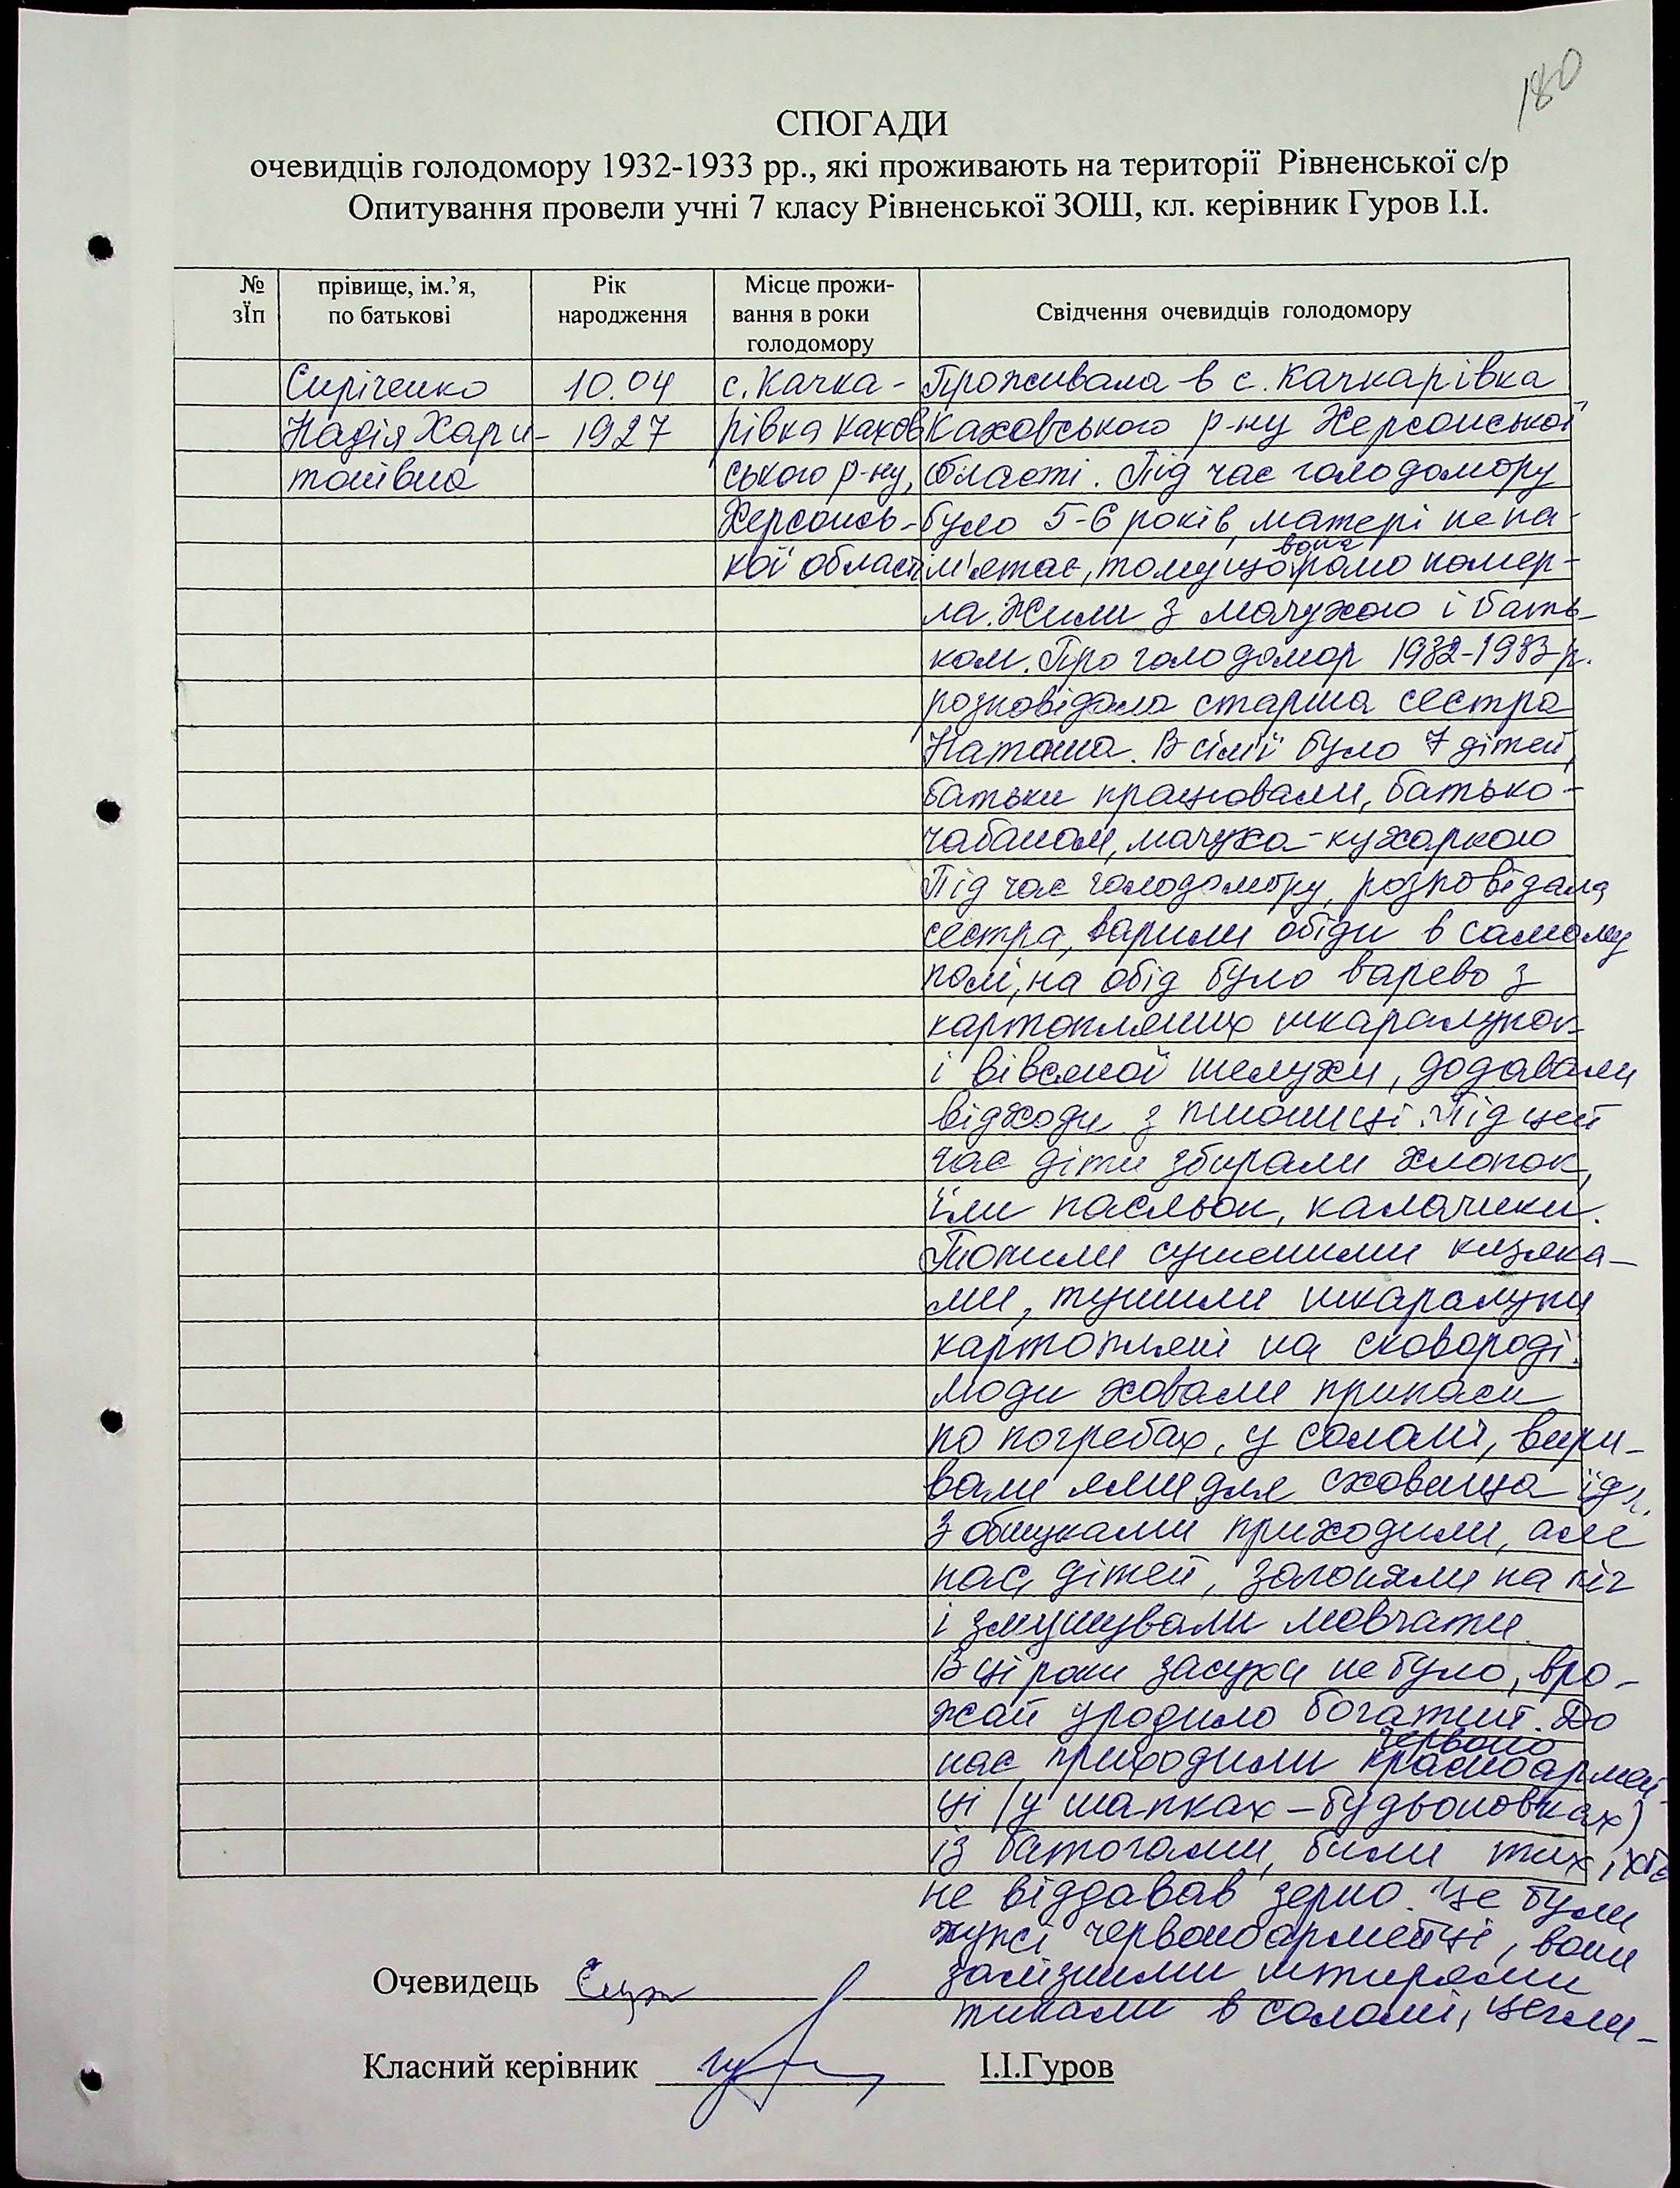 180
СПОГАДИ
очевидців голодомору 1932-1933 рр., які проживають на території Рівненської с/р
Опитування провели учні 7 класу Рівненської ЗОШ, кл. керівник Гуров І.І.
№ зЇп
прівище, ім.’я, по батькові
Рік народження
Місце прожи-
вання в роки
голодомору
Свідчення очевидців голодомору
Сиріченко
Надія Хари-
тонівна
10.04
1927
с. Качка-
рівка Кахов
ського р-ну,
Херсонсь-
кої област
Проживала в с. Качкарівка
Каховського р-ну Херсонської
області. Під час голодомору
було 5-6 років, матері не па-
м'ятає, тому що вона рано помер-
ла. Жили з мачухою і бать-
ком. Про голодомор 1932-1933 р.
розповідала старша сестра
Наташа. В сім'ї було 7 дітей,
батьки працювали, батько -
чабаном, мачуха - кухаркою
Під час голодомору, розповідала
сестра, варили обіди в самому
полі, на обід було варево з
картопляних шкаралупок
і вівсяної шелухи, додавали
відходи з пшониці. Під цей
час діти збирали хлопок,
їли пасльон, калачики.
Топили сушеними кизяка-
ми, тушили шкаралупи
картопляні на сковороді.
Люди ховали припаси
по погребах, у соломі, вири-
вали ями для сховища їди.
З обшуками приходили, але
нас, дітей, загоняли на піч
і змушували мовчати.
В ці роки засухи не було, вро-
жай уродило богатий. До
нас приходили красноармей-
червоно
ці (у шапках - будьоновках)
із батогами, били тих, хто
не віддавав зерно. Це були
чужі червоноармейці, вони
залізними штирями
тикали в соломі, цегли-
Очевидець
Класний керівник
І.І.Гуров